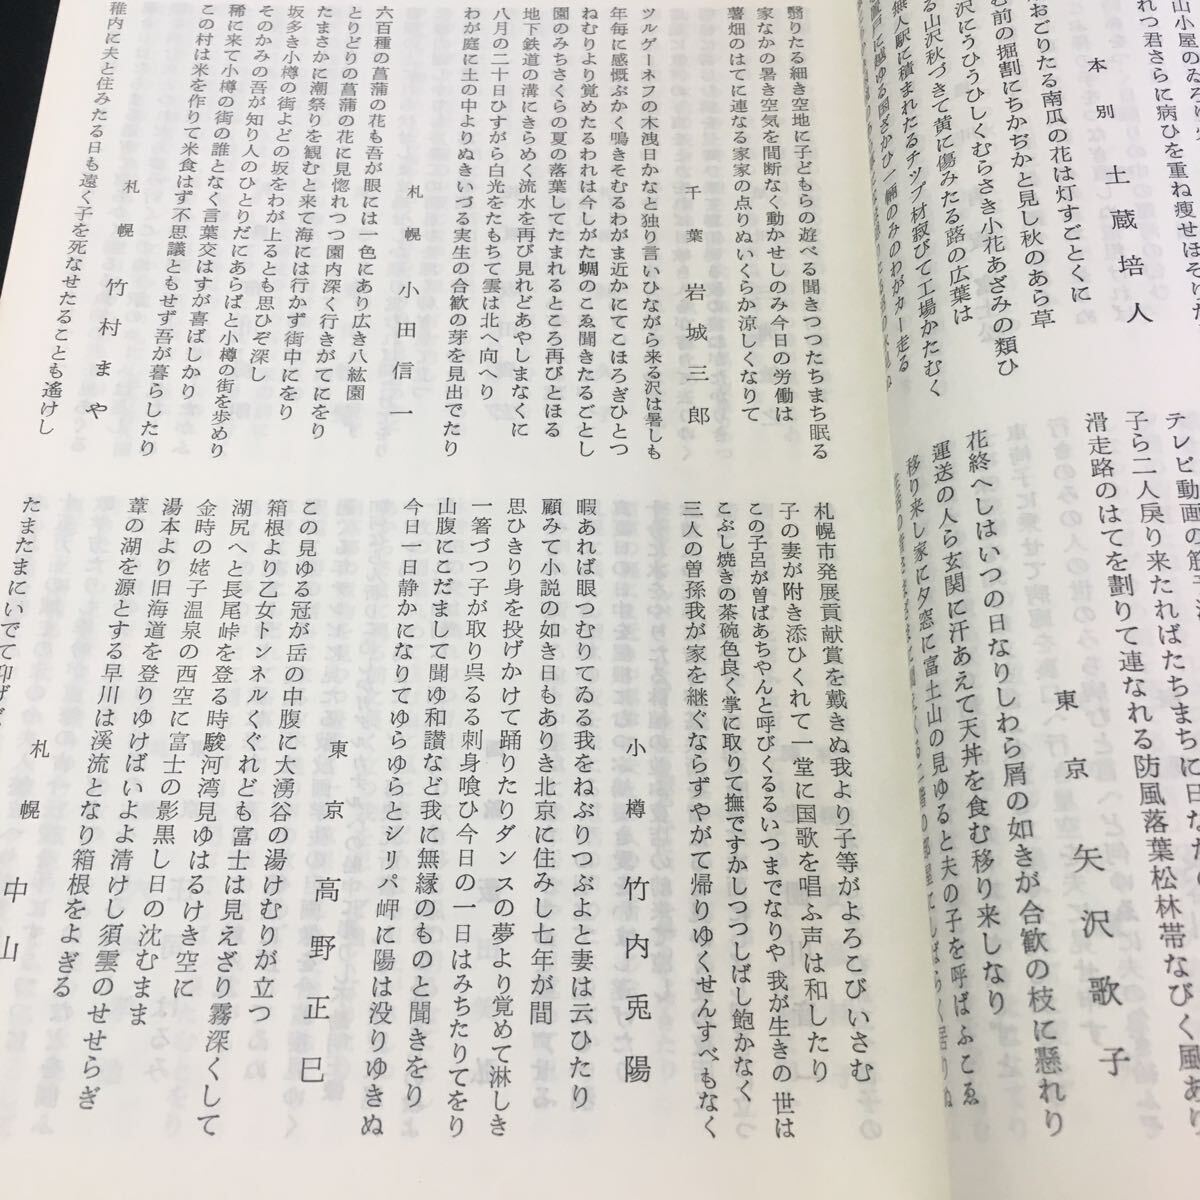 本別 土蔵培人
おごりたる南瓜の花は灯すごとくに
前の掘割にちかぢかと見し秋のあら草
沢にうひうひしくむらさき小花あざみの類ひ
る山沢秋づきて黄に傷みたる蕗の広葉は
無人駅に積まれたるチップ材寂びて工場かたむく
テレビ動画の筋
子ら二人戻り来たればたちまちに日なた
滑走路のはてを劃りて連なれる防風落葉松林帯なびく風あり
東京 矢沢歌子
花終へしはいつの日なりしわら屑の如きが合歓の枝に懸れり
運送の人ら玄関に汗あえて天丼を食む移り来しなり
移り来し家に夕窓に富士山の見ゆると夫の子を呼ばふこゑ
翳りたる細き空地に子どもらの遊べる聞きつつたちまち眠る
家なかの暑き空気を間断なく動かせしのみ今日の労働は
薯畑のはてに連なる家家の点りぬいくらか涼しくなりて
千葉 岩城三郎
ツルゲーネフの木洩日かなと独り言いひながら来る沢は暑しも
年毎に感慨ぶかく鳴きそむるわがま近かにてこほろぎひとつ
ねむりより覚めたるわれは今しがた蜩のこゑ聞きたるごとし
園のみちさくらの夏の落葉してたまれるところ再びとほる
地下鉄道の溝にきらめく流水を再び見れどあやしまなくに
八月の二十日ひすがら白光をたもちて雲は北へ向へり
わが庭に土の中よりぬきいづる実生の合歓の芽を見出でたり
札幌 小田信一
六百種の菖蒲の花も吾が眼には一色にあり広き八紘園
とりどりの菖蒲の花に見惚れつつ園内深く行きがてにをり
たまさかに潮祭りを観むと来て海には行かず街中にをり
坂多き小樽の街よどの坂をわが上るとも思ひぞ深し
そのかみの吾が知り人のひとりだにあらばと小樽の街を歩めり
稀に来て小樽の街の誰となく言葉交はすが喜ばしかり
この村は米を作りて米食はず不思議ともせず吾が暮らしたり
札幌 竹村まや
稚内に夫と住みたる日も遠く子を死なせたることも遙けし
札幌市発展貢献賞を戴きぬ我より子等がよろこびいさむ
子の妻が附き添ひくれて一堂に国歌を唱ふ声は和したり
この子呂が曽ばあちやんと呼びくるるいつまでなりや我が生きの世は
こぶし焼きの茶碗色良く掌に取りて撫ですかしつつしばし飽かなく
三人の曽孫我が家を継ぐならずやがて帰りゆくせんすべもなく
小樽 竹内兎陽
暇あれば眼つむりてゐる我をねぶりつぶよと妻は云ひたり
顧みて小説の如き日もありき北京に住みし七年が間
思ひきり身を投げかけて踊りたりダンスの夢より覚めて淋しき
一箸づつ子が取り呉るる刺身喰ひ今日の一日はみちたりてをり
山腹にこだまして聞ゆ和讃など我に無縁のものと聞きをり
今日一日静かになりてゆらゆらとシリパ岬に陽は没りゆきぬ
東京 高野正巳
この見ゆる冠が岳の中腹に大湧谷の湯けむりが立つ
箱根より乙女トンネルくぐれども富士は見えざり霧深くして
湖尻へと長尾峠を登る時駿河湾見ゆはるけき空に
金時の姥子温泉の西空に富士の影黒し日の沈むまま
湯本より旧海道を登りゆけばいよよ清けし須雲のせせらぎ
葦の湖を源とする早川は溪流となり箱根をよぎる
札幌 中山
たまたまにいでて仰げ